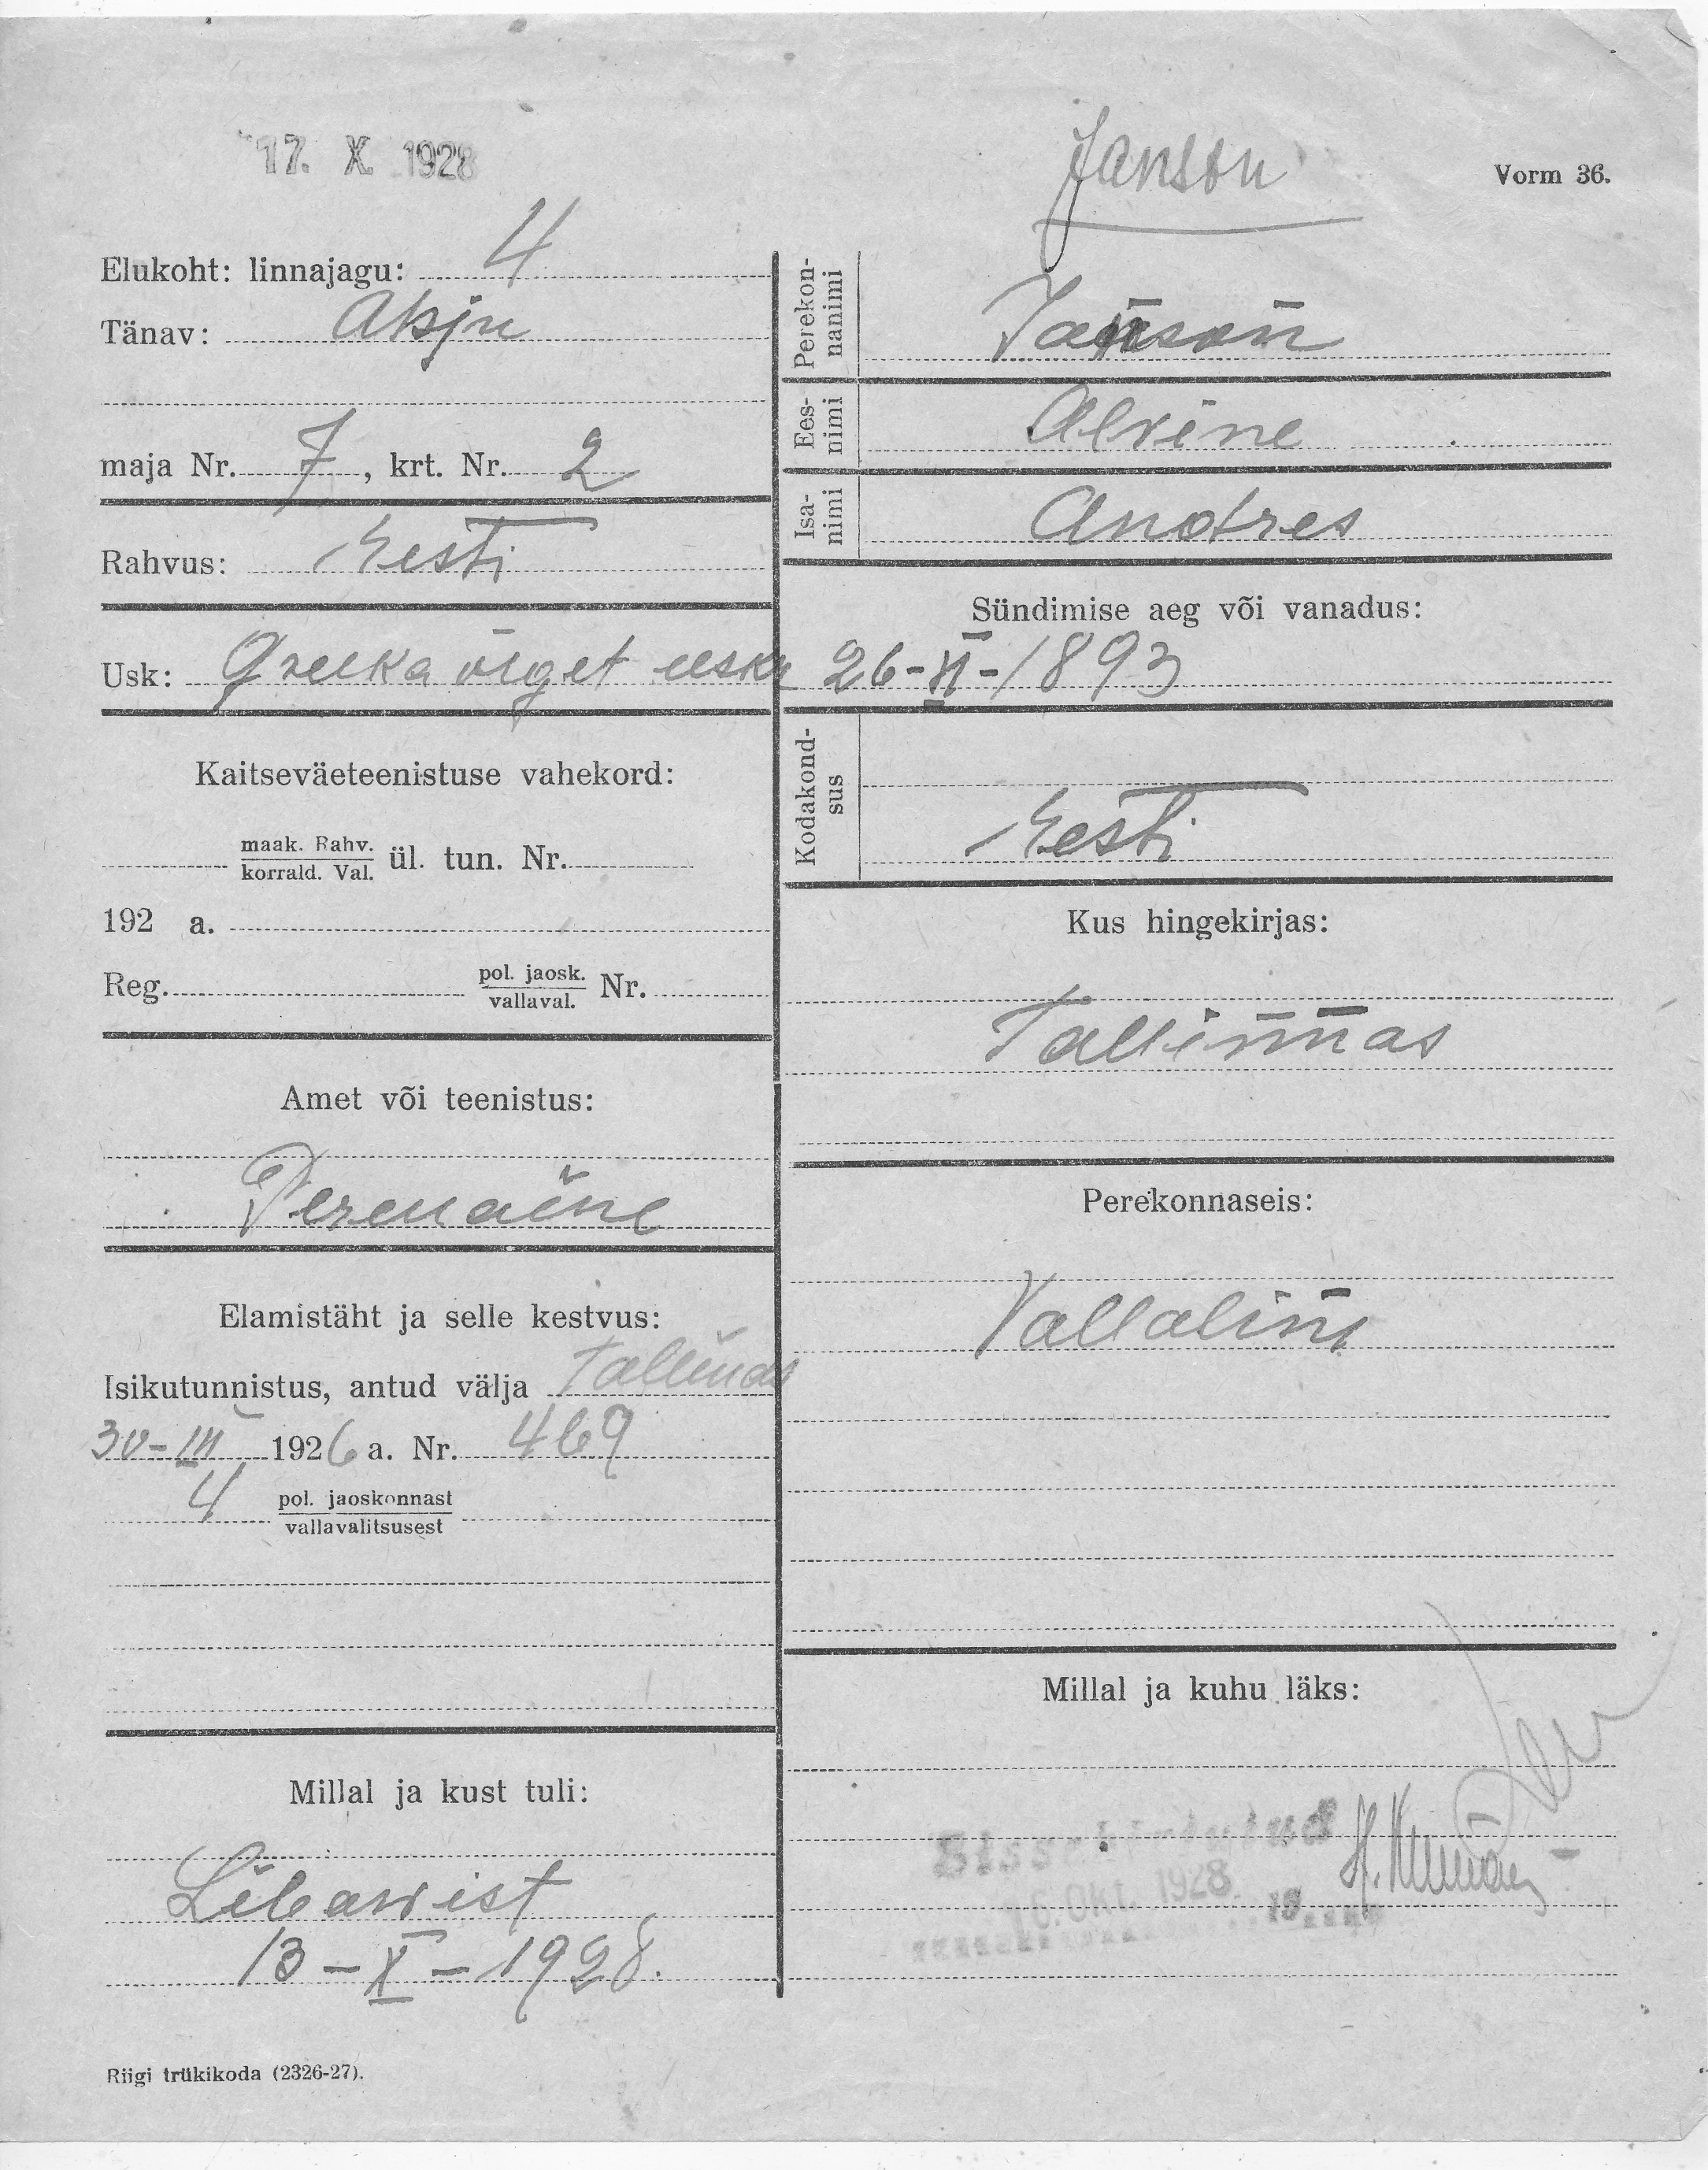 17. X 1928
Janson
Vorm 36.
Elukoht: linnajagu: 4
Tänav:
maja Nr. 7, krt. Nr. 2
Rahvus: Eesti
Usk: Greeka õiget usku
Kaitseväeteenistuse vahekord:
maak. Rahv.
korrald. Val. ül. tun. Nr.
192 a.
Reg. pol. jaosk.
vallaval. Nr.
Amet või teenistus:
Perenaine
Elamistäht ja selle kestvus:
Isikutunnistus, antud välja Tallinas
30-III 1926 a. Nr. 469
4 pol. jaoskonnast
vallavalitsusest
Millal ja kust tuli:
Libawist
13-X-1928.
Riigi trükikoda (2326-27).
Perekon-
nanimi
Janson
Ees-
nimi
Alvine
Isa-
nimi
Andres
Sündimise aeg või vanadus:
26-II-1893
Kodakond-
sus
Eesti
Kus hingekirjas:
Tallinnas
Perekonnaseis:
Vallaline
Millal ja kuhu läks:
Sissekirjutud
16. Okt. 1928. 19